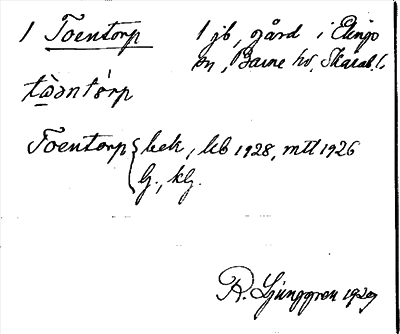 1 Toentorp 1 jb, gård i Elings
sn, Barne hd, Skarab. l.
tὼntȯrp
Toentorp { bek, kb 1928, mtl 1926
G., kg.
R. Ljunggren 1929